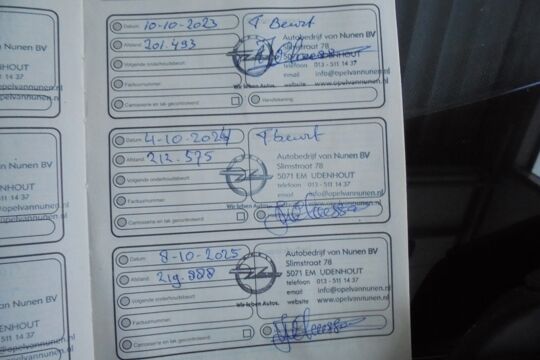 van Nunen BV
at 78
ENHOUT
511 14 37
opelvannunen.nl
Datum 10-10-2023
Afstand 201.493
Volgende onderhoudsbeurt
Factuurnummer
Carrosserie en lak gecontroleerd
Beurt
Autobedrijf van Nunen BV
Slimstraat 78
UDENHOUT
telefoon 013 - 511 14 37
email info@opelvannunen.nl
website www.opelvannunen.nl
Handtekening
van Nunen BV
78
DENHOUT
511 14 37
@opelvannunen.nl
opelvannunen.nl
Datum 4-10-2024
Afstand 212.575
Volgende onderhoudsbeurt
Factuurnummer
Carrosserie en lak gecontroleerd
Wir leben Autos.
Beurt
Autobedrijf van Nunen BV
Slimstraat 78
5071 EM UDENHOUT
telefoon 013 - 511 14 37
email info@opelvannunen.nl
website www.opelvannunen.nl
van Nunen BV
78
NHOUT
511 14 37
@opelvannunen.nl
opelvannunen.nl
Datum 8-10-2025
Afstand 219.988
Volgende onderhoudsbeurt
Factuurnummer
Carrosserie en lak gecontroleerd
Wir leben Autos.
Autobedrijf van Nunen BV
Slimstraat 78
5071 EM UDENHOUT
telefoon 013 - 511 14 37
email info@opelvannunen.nl
website www.opelvannunen.nl